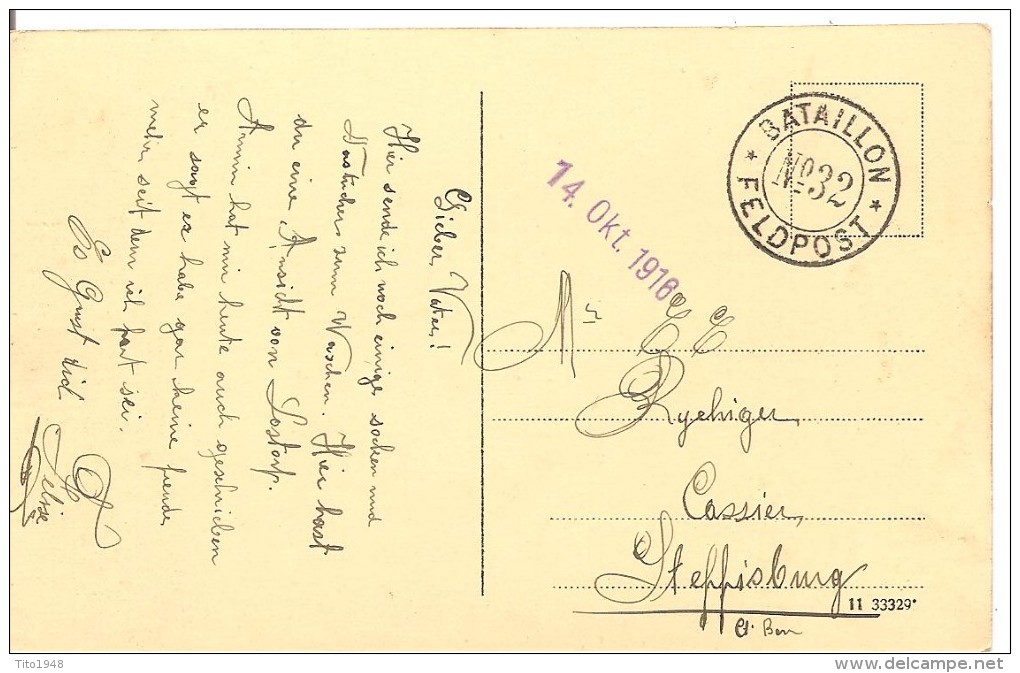 Lieber Vater!
Hier sende ich noch einige socken und
Nastücher zum Waschen. Hier hast
du eine Ansicht von Lostorf.
Armin hat mir heute auch geschrieben
er sagt er habe gar keine freude
mehr seit dem ich fort sei.
Es Grüst dich
BATAILLON
No 32
* FELDPOST *
14. Okt. 1916
Mr
Rychiger
Cassier,
Steffisburg
Ct. Bern
11 33329*
Tito1948
delcampe.net